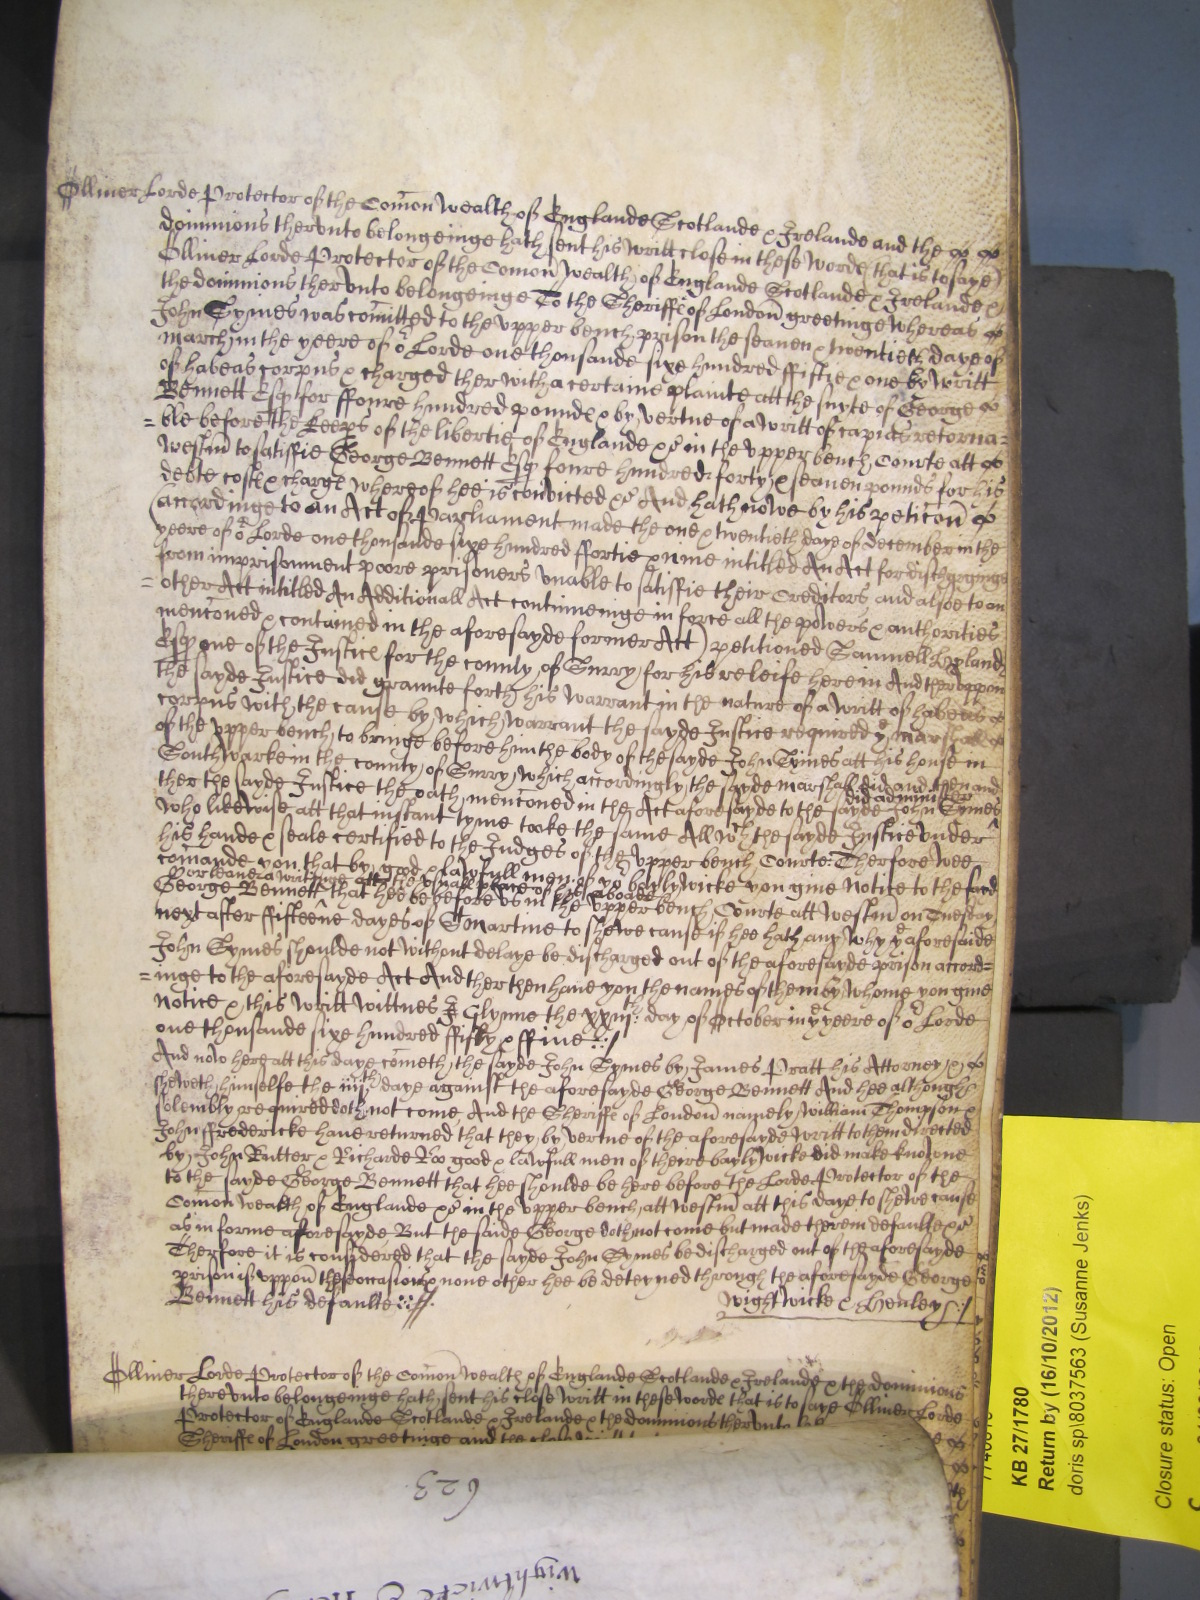 Olliuer Lorde Protector of the Com̄on wealth of Englande Scotlande & Irelande and the
dominions therunto belongeinge hath sent his writt close in these wordes (that is to saye)
Olliuer Lorde Protector of the Com̄on wealth of Englande Scotlande & Irelande &
the dominions thervnto belongeinge To the Sheriffes of London greetinge whereas
John Symes was com̄itted to the vpper bench prison the seauen & twentieth daye of
march in the yeere of or Lorde one thousande sixe hundred ffiftie & one by writt
of habeas corpus & charged ther with a certaine plainte att the suyte of George
Bennett Esqr for ffoure hundred poundes & by vertue of a writt of capias retorna=
=ble before the keeps of the libertie of Englande &c in the vpper bench Courte att
westm̄ to satisfie George Bennett Esqr foure hundred forty & seauen pounds for his
debte costes & charges whereof hee is convicted &c And hath nowe by his peticōn
(accordinge to an Act of Parliament made the one & twentieth daye of december in the
yeere of or Lorde one thousande sixe hundred ffortie & nine intitled An Act for dischargeinge
from imprisonment poore prisoners vnable to satisfie their Creditors and alsoe to an
=other Act intitled An Additionall Act continueinge in force all the powers & authorities
menc̄oned & contained in the aforesayde former Act) petitioned Samuell Hyland
Esqr one of the Justices for the county of Surry for his releife herein And theruppon
the sayde Justice did graunte forth his warrant in the nature of a writt of habeas
corpus with the cause by which warrant the sayde Justice required ye marshall
of the vpper bench to bringe before him the body of the sayde John Symes att his house in
Southwarke in the county of Surry which accordingly the sayde marshall did and then and
ther the sayde Justice did administer the oath menc̄oned in the Act aforesayde to the sayde John Symes
who likewise att that instant tyme tooke the same All wch the sayde Justice vnder
his hande & seale certified to the Judges of the vpper bench Courte: Therfore wee
com̄ande you that by good & lawfull men of yor baylywicke you giue Notice to the said
George Bennett or leaue a writinge att the vsuall place of his aboade that hee be before vs in the vpper bench Courte att westm̄ on Tuesday
next after ffifteene dayes of St Martine to shewe cause if hee hath any why ye aforesaide
John Symes shoulde not without delaye be discharged out of the aforesayde prison accord=
=inge to the aforesayde Act And ther then haue you the names of them by whome you giue
Notice & this writt wittnes J Glynne the day of October in ye yeere of or Lorde
one thousande sixe hundred ffifty & ffiue :/
And now here att this daye cometh the sayde John Symes by James Pratt his Attorney &
sheweth himselfe the iiijth daye against the aforesayde George Bennett And hee although
solembly required doth not come And the Sheriffes of London namely William Thompson &
John Fredericke haue returned that they by vertue of the aforesayde writt to them directed
by John Rutter & Richarde Roo good & lawfull men of theire baylywicke did make knowne
to the sayde George Bennett that hee shoulde be here before the Lorde Protector of the
Com̄on wealth of Englande &c in the vpper bench att westm̄ att this daye to shewe cause
as in forme aforesayde But the saide George doth not come but made therein defaulte &c
Therfore it is considered that the sayde John Symes be discharged out of the aforesayde
prison if vppon the occasion & none other hee be deteyned through the aforesayde George
Bennett his defaulte
Wightwicke & Henley :/
Olliuer Lorde Protector of the Com̄on wealth of Englande Scotlande & Irelande & the dominions
therevnto belongeinge hath sent his close writt in these wordes that is to saye Olliuer Lorde
Protector of Englande Scotlande & Irelande & the dominions thervnto
Sheriffes of London greetinge
623
Wightwicke &
KB 27/1780
Return by (16/10/2012)
doris sp\8037563 (Susanne Jenks)
Closure status: Open